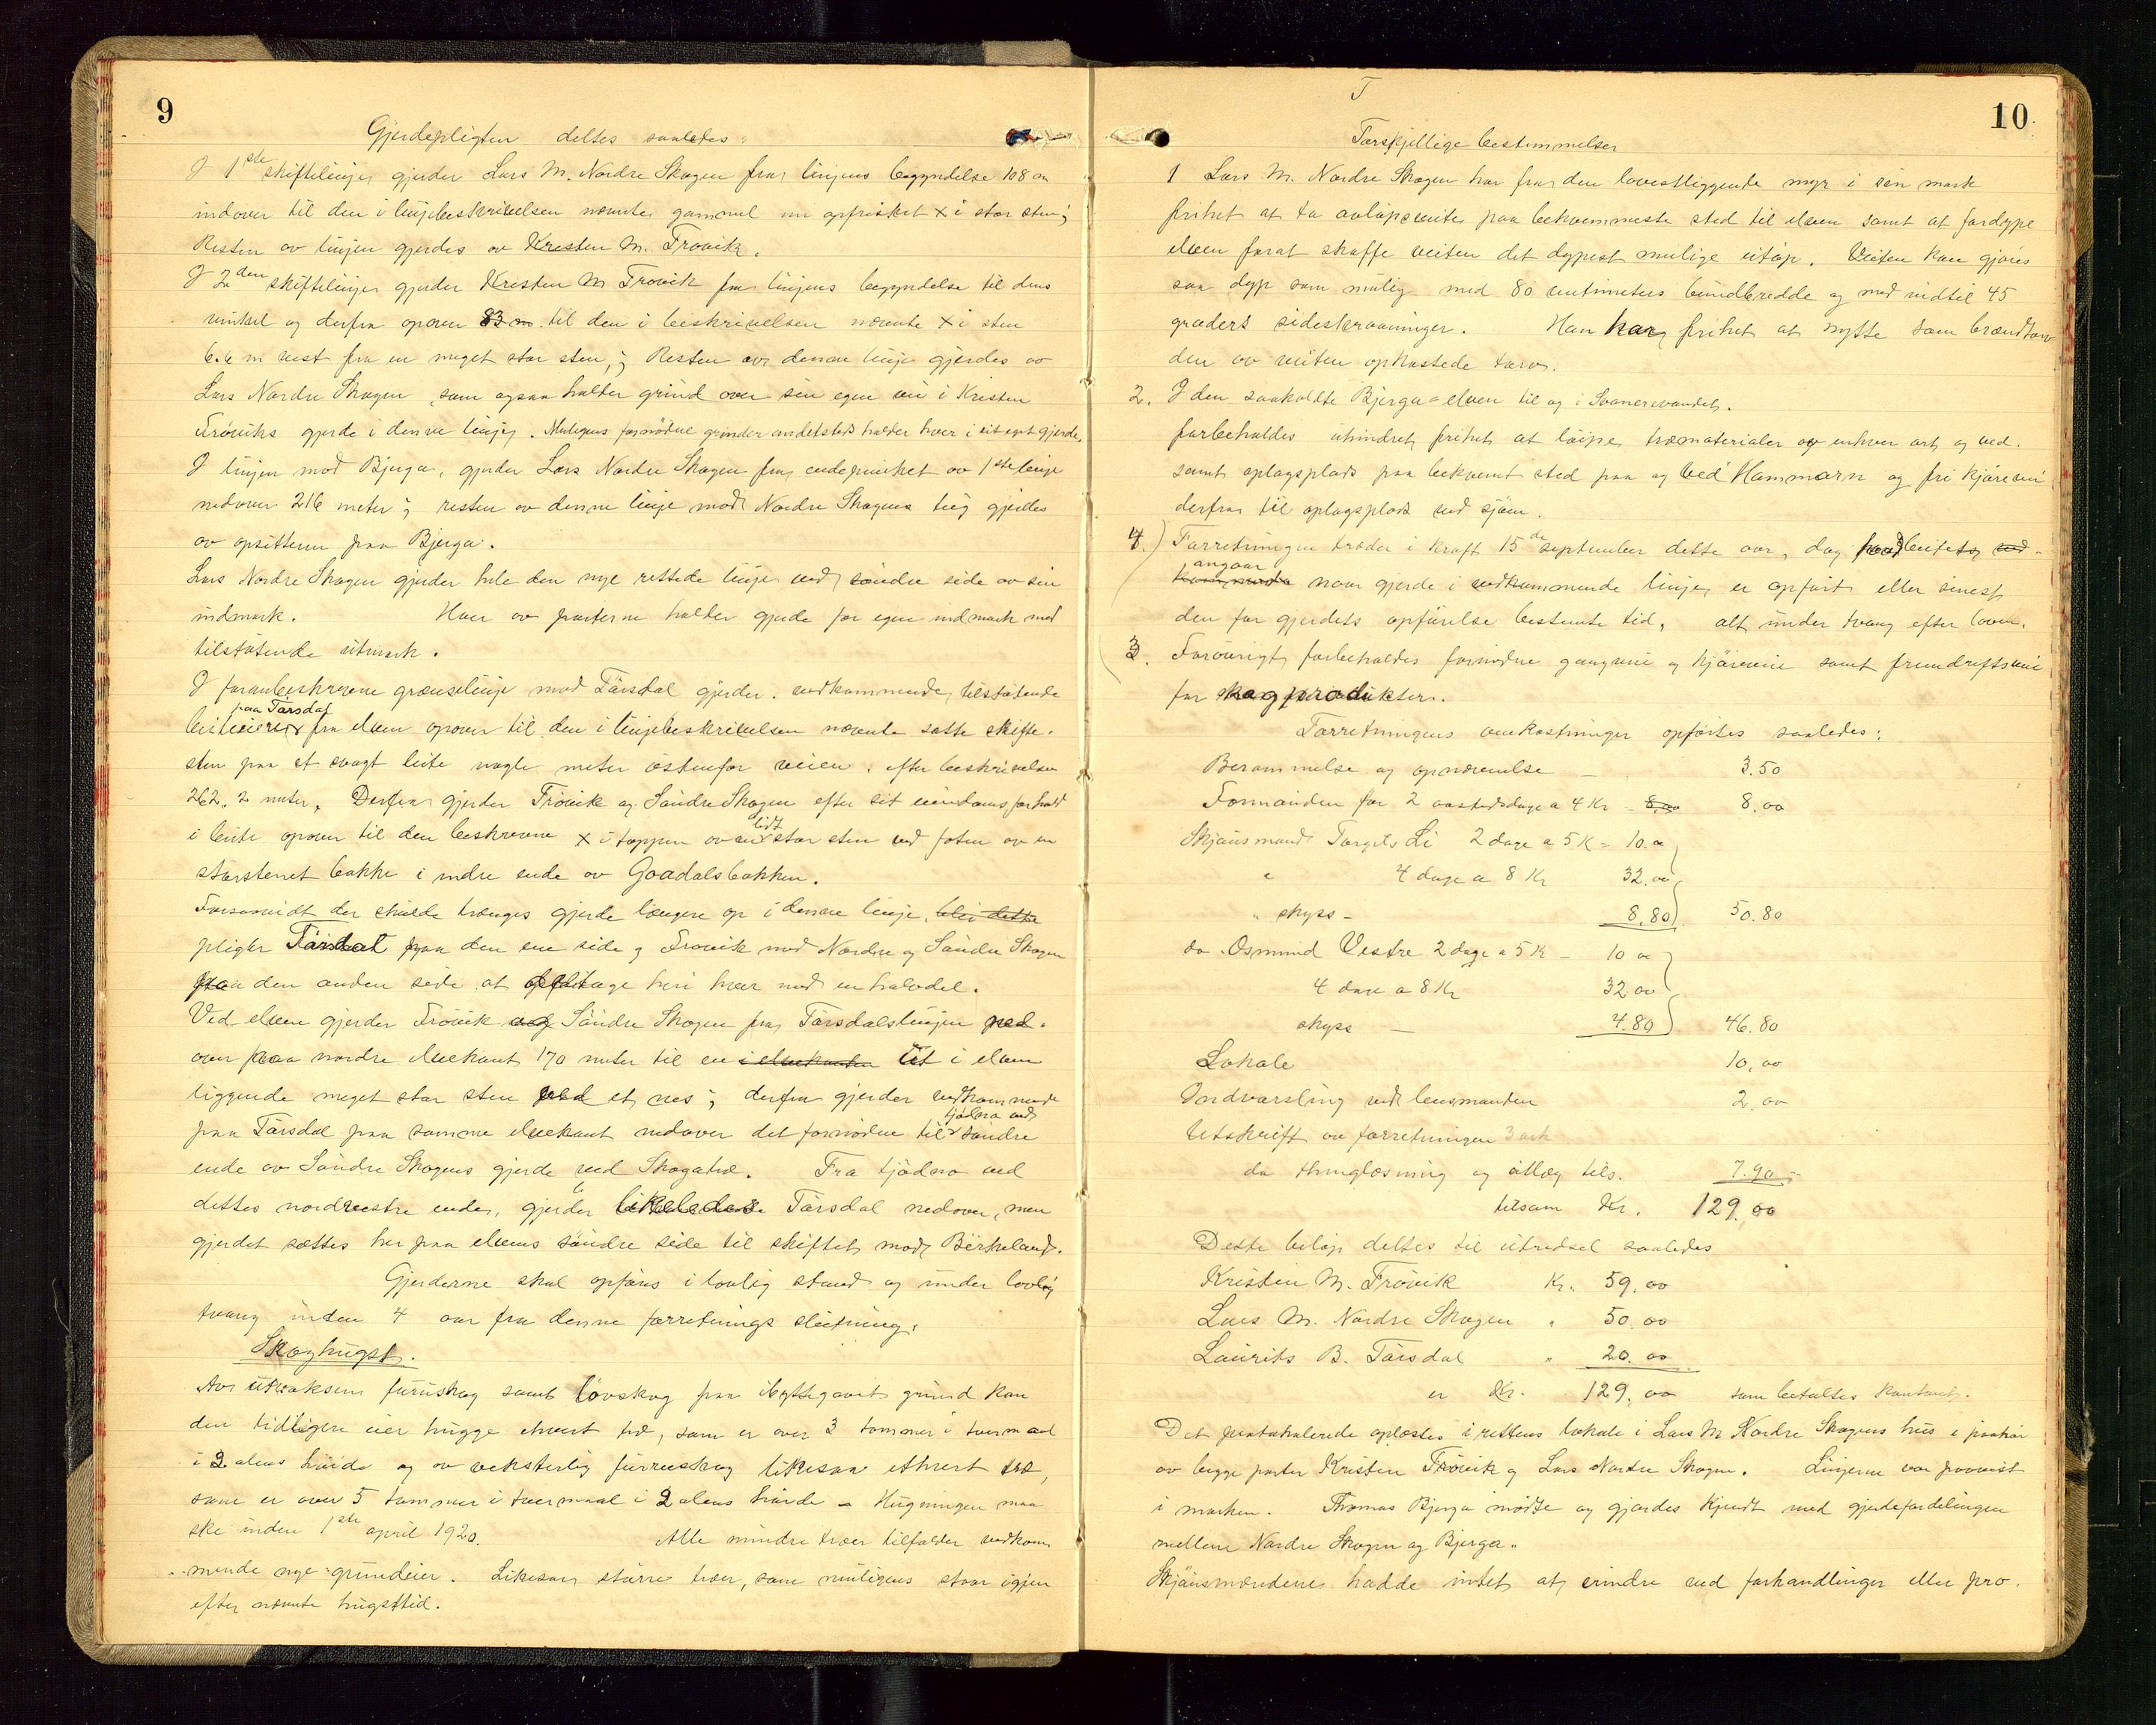 9
Gjerdepligten deltes saaledes:
I 1ste skiftelinje gjerder Lars M. Nordre Skogen fra linjens begyndelse 108 m
indover til den i linjebeskrivelsen nævnte gammel nu opfrisket x i stor sten;
Resten av linjen gjerdes av Kresten M. Trovik.
I 2den skiftelinje gjerder Kresten M Trovik fra linjens begyndelse til dens
vinkel og derfra opover 83 m. til den i beskrivelsen nævnte x i sten
6.6 m vest fra en meget stor sten,; Resten av denne linje gjerdes av
Lars Nordre Skogen som ogsaa holder grind over sin egen vei i Kristen
Trøviks gjerde i denne linje. Muligens fornødne grinder andetsteds holder hver i sit eget gjerde.
I linjen mod Bjerga, gjerder Lars Nordre Skogen fra endepunktet av 1ste linje
nedover 216 meter; resten av denne linje mod Nordre Skogens teig gjerdes
av opsitterne paa Bjerga.
Lars Nordre Skogen gjerder hele den nye rettede linje ved søndre side av sin
indmark. Hver av parterne holder gjerde for egen indmark mod
tilstøtende utmark.
I foranbeskrevne grænselinje mod Tårsdal gjerder vedkommende tilstøtende
paa Tarsdal
beiteeiere fra elven opover til den i linjebeskrivelsen nævnte satte skifte-
sten paa et svagt leite nogle meter østenfor veien. efter beskrivelsen
262.2 meter. Derfra gjerder Trøvik og Søndre Skogen efter sit eiendomsforhold
i beite opover til den beskrevne x i toppen av en lidt stor sten ved foten av en
storstenet bakke i indre ende av Goadalsbakken.
Forsaavidt der skulde trænges gjerde længere op i denne linje, blir dette
pligter Tårsdal paa den ene side og Trovik med Nordre og Søndre Skogen
paa den anden side at deltage heri hver med en halvdel.
Ved elven gjerder Trøvik og Søndre Skogen fra Tårsdalslinjen ned-
over paa nordre elvekant 170 meter til en i elvekanten ut i elven
liggende meget stor sten ved et nes; derfra gjerder vedkommende
paa Tårsdal paa samme elvekant nedover det fornødne til tjødno ved søndre
ende av Søndre Skogens gjerde ved Skogatræ. Fra tjødno ved
dettes nordvestre ende, gjerder likeledes Tårsdal nedover, men
gjerdet sættes her paa elvens søndre side til skiftet mod Birkeland.
Gjerderne skal opføres i lovlig stand og under lovlig
tvang inden 4 aar fra denne forretnings slutning.
Skoghugst.
Av utvoksen furuskog samt løvskog paa ibyttegavit grund kan
den tidligere eier hugge ethvert træ, som er over 3 tommer i tvermaal
i 2 alens høide og av veksterlig furruskog likesaa ethvert træ,
som er over 5 tommer i tvermaal i 2 alens høide - Hugningen maa
ske inden 1ste april 1920. Alle mindre trær tilfalder vedkom-
mende nye grundeier. Likesaa større trær, som muligens staar igjen
efter nævnte hugsttid.
10
T
Forskjellige bestemmelser
1 Lars M. Nordre Skogen har fra den lavestliggende myr i sin mark
frihet at ta avløpsveite paa bekvemmeste sted til elven samt at fordype
elven forat skaffe veiten det dypest mulige utløp. Veiten kan gjøres
saa dyp som mulig med 80 centimeters bundbredde og med indtil 45
graders sideskraaninger. Han har frihet at nytte som brændtorv
den av veiten opkastede torv.
2. I den saakaldte Bjerga-elven til og i Svanevandet.
forbeholdes uhindret frihet at løipe træmaterialer av enhver art og ved.
samt oplagsplads paa bekvemt sted paa og ved Hammarn og fri kjørevei
derfra til oplagsplads ved sjøen.
4.) Forretningen træder i kraft 15de september dette aar, dog hvad beitet ved-
angaar
kommende naar gjerde i vedkommende linje er opført eller senest
den for gjerdets opførelse bestemte tid, alt under tvang efter loven.
3. Forøvrigt forbeholdes fornødne gangveie og kjøreveie samt fremdriftsveie
for skogprodukter.
Forretningens omkostninger opførtes saaledes:
Berammelse og opnævnelse - 3.50
Formanden for 2 aastedsdage a 4 Kr - 8.00 8.00
Skjønsmand Torgils Li 2 dage a 5 K = 10.00
" 4 dage a 8 Kr 32.00
" skyss - 8.80 50.80
do Osmund Vestre 2 dage a 5 K - 10 00
4 dage a 8 Kr 32.00
skyss - 4.80 46.80
Lokale 10.00
Indvarsling ved lensmanden 2.00
Utskrift av forretningen 3 ark
do thinglæsning og utlæg tils. 7.90 -
tilsam Kr. 129.00
Dette beløp deltes til utredsel saaledes
Kristen M. Trøvik Kr. 59.00
Lars M. Nordre Skogen " 50.00
Laurits B. Tårsdal " 20.00
er Kr. 129.00 som betaltes kontant.
Det protokolerede oplæstes i rettens lokale i Lars M Nordre Skogens hus i paahør
av begge parter Kristen Trøvik og Lars Nordre Skogen. Linjerne var paavist
i marken. Thomas Bjerga mødte og gjordes kjendt med gjerdefordelingen
mellem Nordre Skogen og Bjerga.
Skjønsmændene hadde intet at erindre ved forhandlinger eller pro-